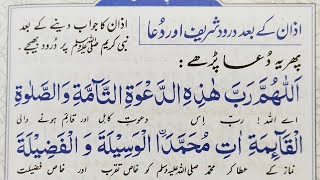 اذان کے بعد درود شریف اور دُعا
اذان کا جواب دینے کے بعد
نبی کریم ﷺ پر درود بھیجے۔
پھر یہ دُعا پڑھے:
اَللّٰهُمَّ رَبَّ هٰذِهِ الدَّعْوَةِ التَّآمَّةِ وَالصَّلٰوةِ
اے اللہ! ربّ اِس دعوتِ کامل اور قائم ہونے والی
الْقَآئِمَةِ اٰتِ مُحَمَّدَاۨ الْوَسِيْلَةَ وَ الْفَضِيْلَةَ
نماز کے عطا کر محمد صلی اللہ علیہ وسلم کو خاص تقرب اور خاص فضیلت